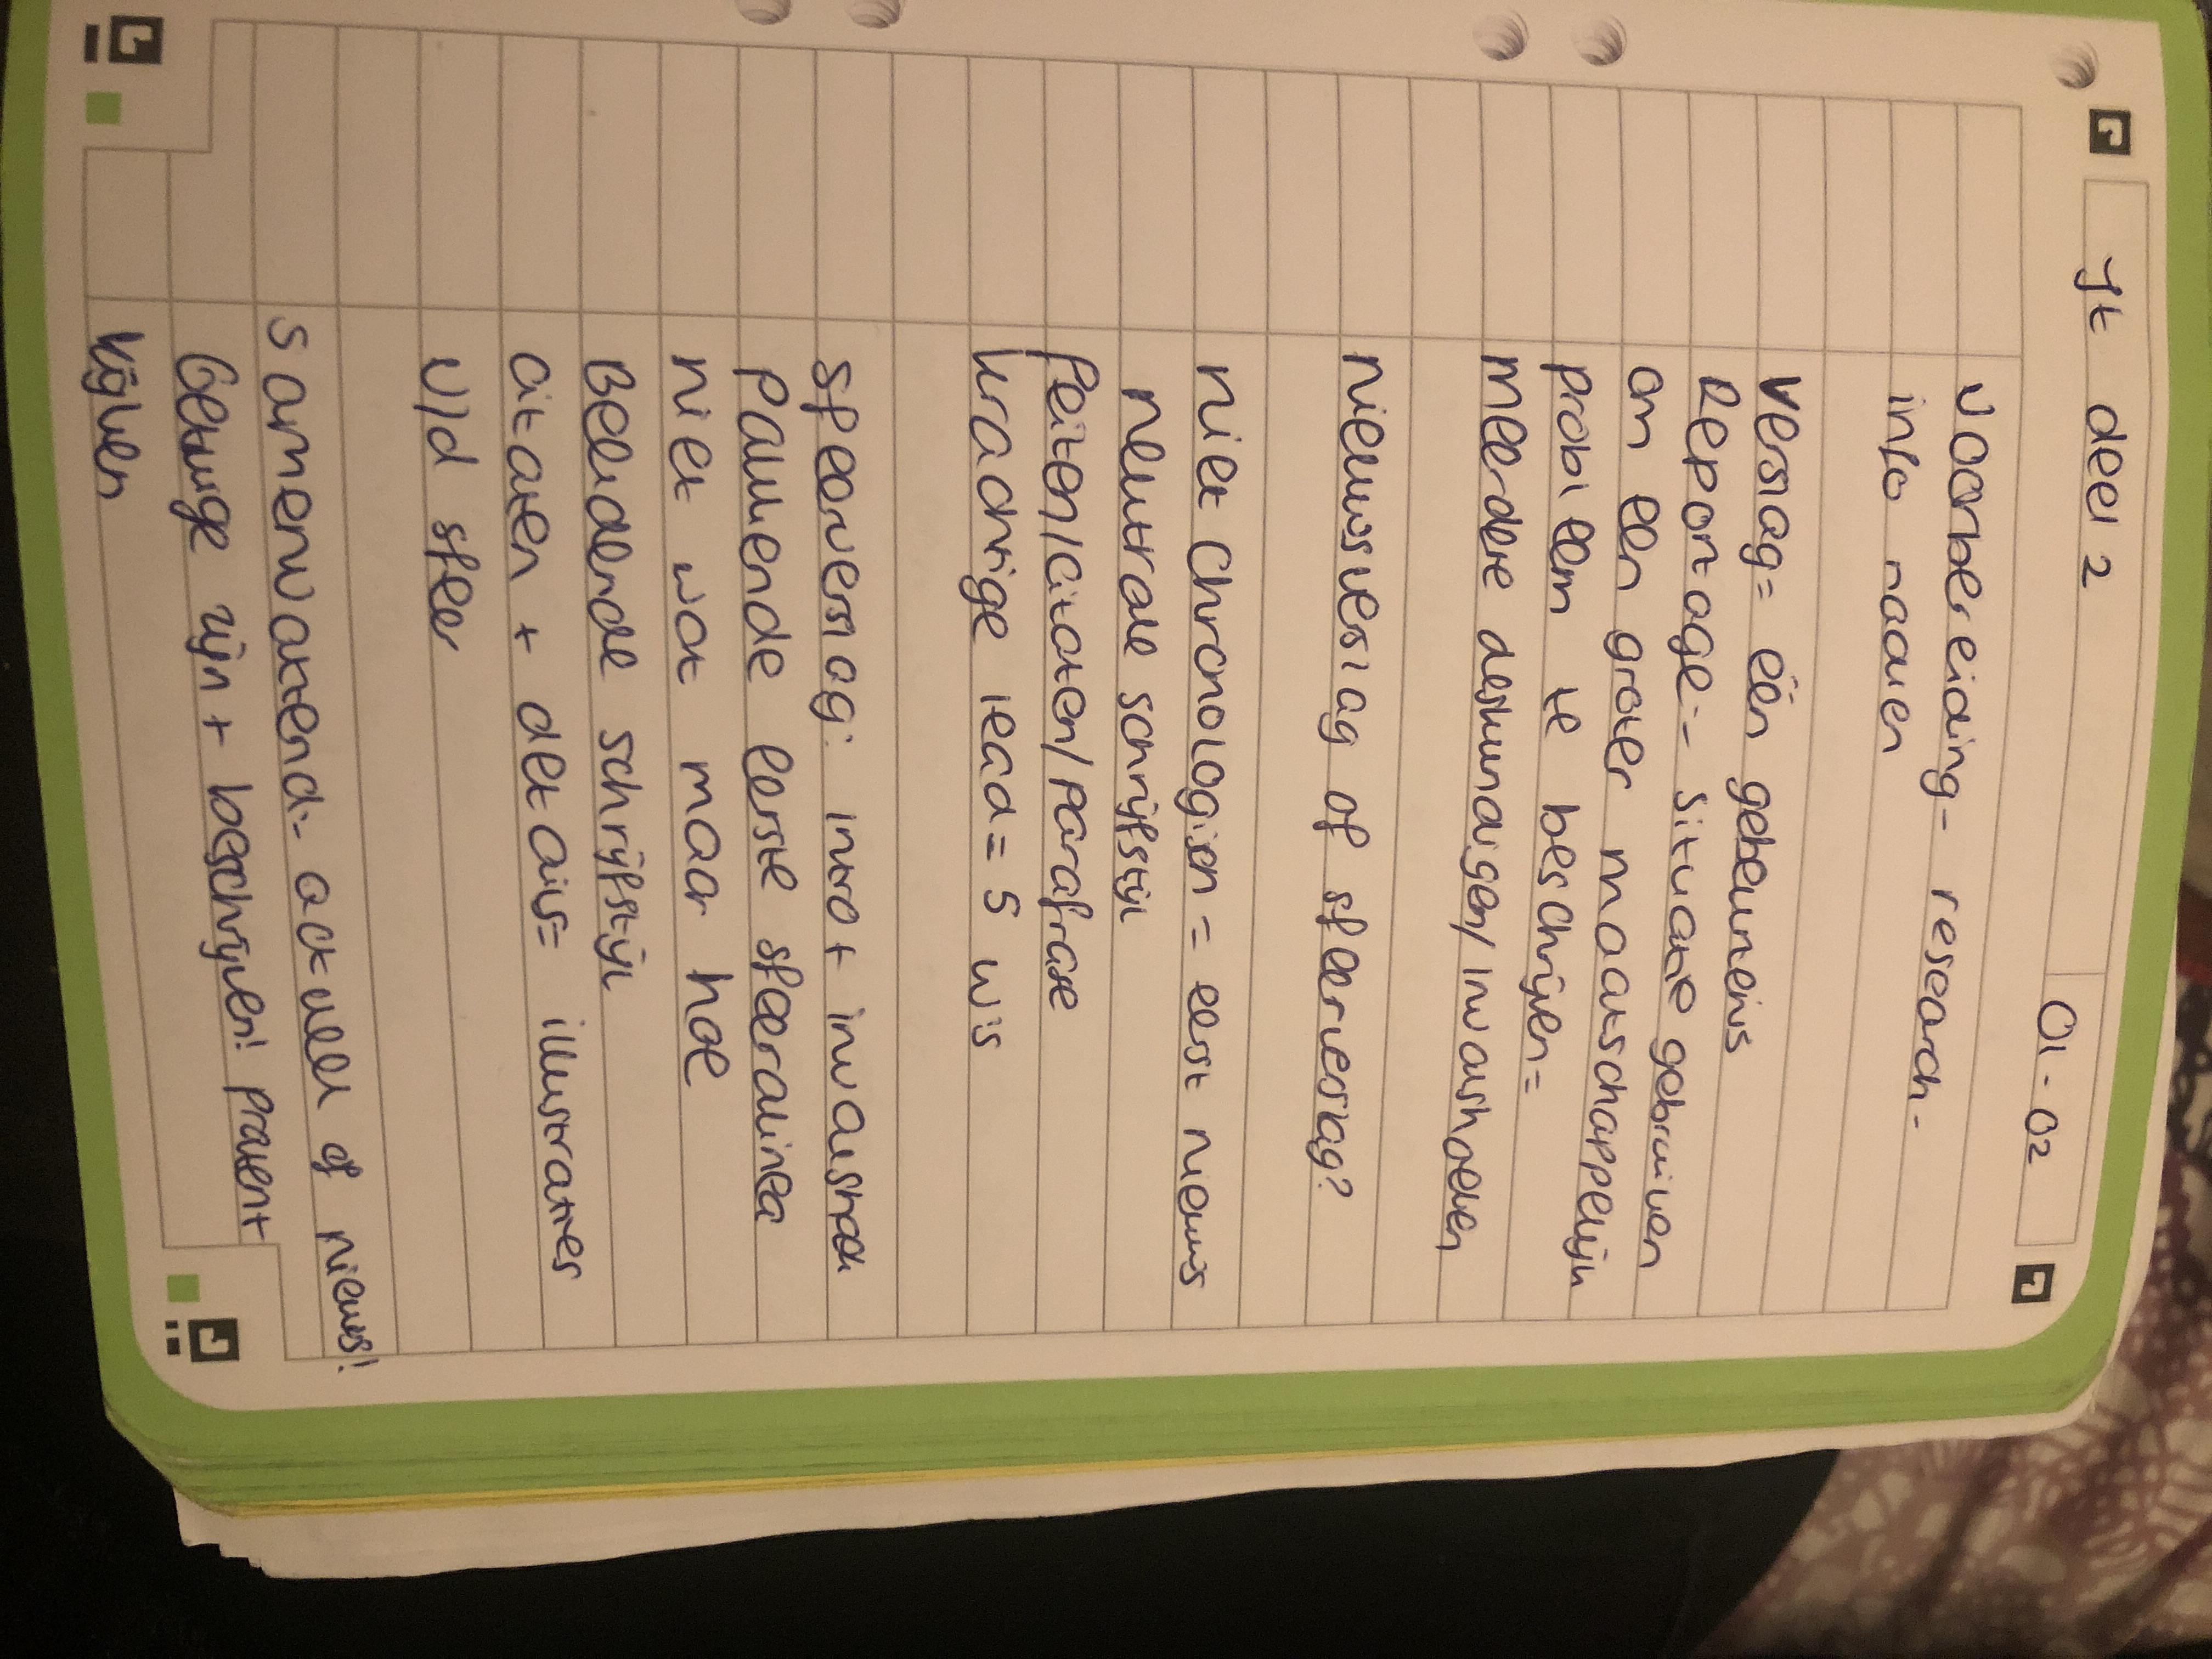 Jt deel 2
01-02
Voorbereiding- research-
info zoeken
Verslag= één gebeurtenis
Reportage:- situatie gebruiken
om een groter maatschappelijk
probleem te beschrijven=
Meerdere deskundigen/inwoners
nieuwsverslag of sfeerverslag?
niet chronologisch = eerst nieuws
neutrale schrijfstijl
feiten/citaten/parafrase
krachtige lead= 5 w's
sfeerverslag: intro + invalshoek
Pakkende eerste sfeeralinea
niet wat maar hoe
Beeldende schrijfstijl
citaten + details= illustraties
v/d sfeer
samenvattend:- actueel of nieuws!
Getuige zijn + beschrijven! praten+
kijken